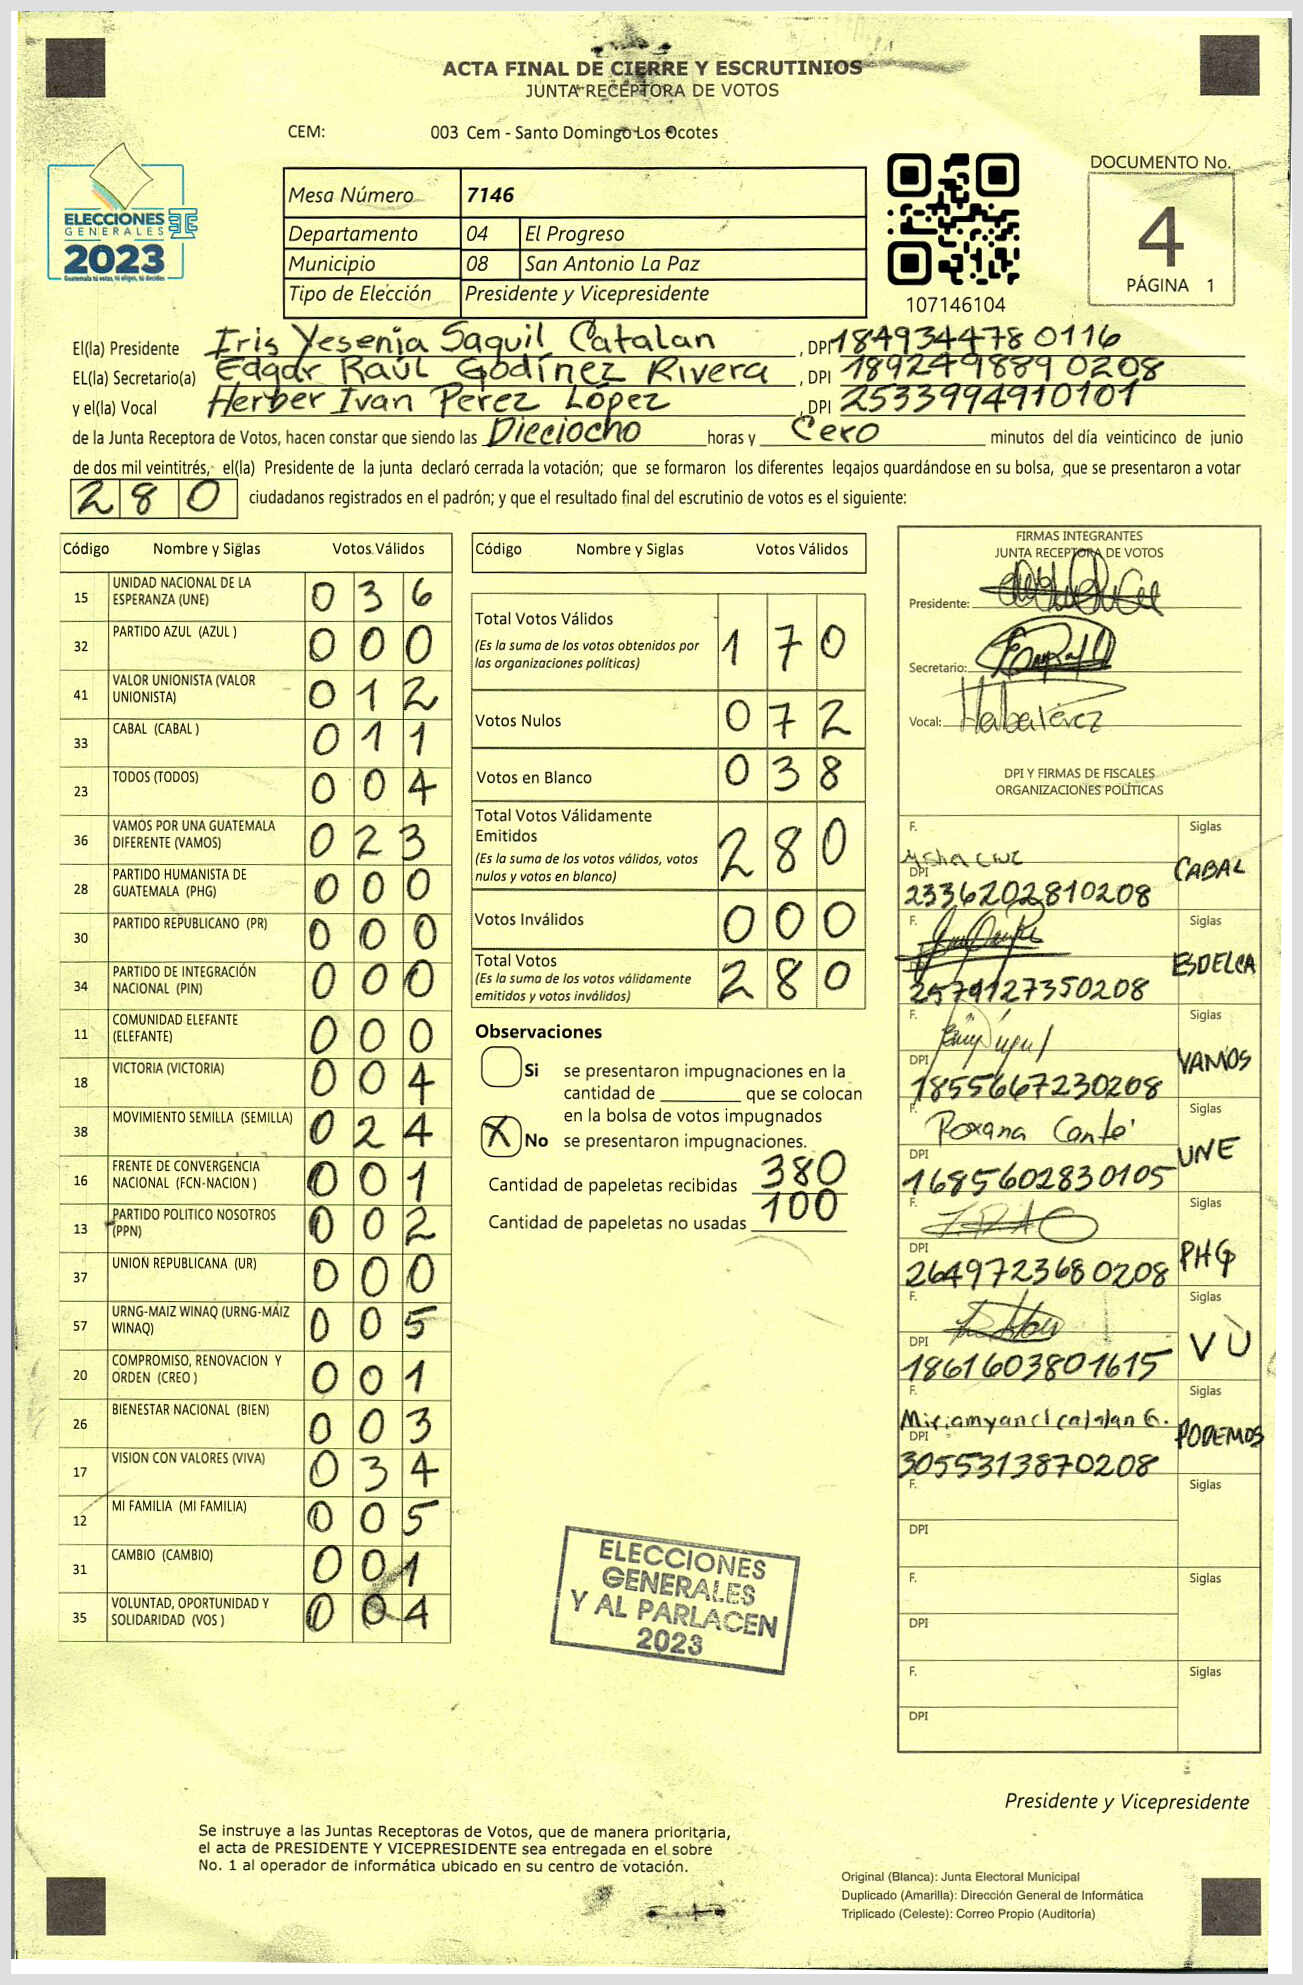 ACTA FINAL DE CIERRE Y ESCRUTINIOS
JUNTA RECEPTORA DE VOTOS
CEM: 003 Cem - Santo Domingo Los Ocotes
ELECCIONES
GENERALES
2023
Guatemala tú votas, tú eliges, tú decides
Mesa Número 7146
Departamento 04 El Progreso
Municipio 08 San Antonio La Paz
Tipo de Elección Presidente y Vicepresidente
107146104
DOCUMENTO No.
4
PÁGINA 1
El(la) Presidente Iris Yesenia Saquil Catalan, DPI 1849344780116
EL(la) Secretario(a) Edgar Raúl Godínez Rivera, DPI 1892498890208
y el(la) Vocal Herber Ivan Perez López, DPI 2533994910101
de la Junta Receptora de Votos, hacen constar que siendo las Dieciocho horas y Cero minutos del día veinticinco de junio
de dos mil veintitrés, el(la) Presidente de la junta declaró cerrada la votación; que se formaron los diferentes legajos guardándose en su bolsa, que se presentaron a votar
280 ciudadanos registrados en el padrón; y que el resultado final del escrutinio de votos es el siguiente:
Código Nombre y Siglas Votos Válidos
15 UNIDAD NACIONAL DE LA ESPERANZA (UNE) 036
32 PARTIDO AZUL (AZUL ) 000
41 VALOR UNIONISTA (VALOR UNIONISTA) 012
33 CABAL (CABAL ) 011
23 TODOS (TODOS) 004
36 VAMOS POR UNA GUATEMALA DIFERENTE (VAMOS) 023
28 PARTIDO HUMANISTA DE GUATEMALA (PHG) 000
30 PARTIDO REPUBLICANO (PR) 000
34 PARTIDO DE INTEGRACIÓN NACIONAL (PIN) 000
11 COMUNIDAD ELEFANTE (ELEFANTE) 000
18 VICTORIA (VICTORIA) 004
38 MOVIMIENTO SEMILLA (SEMILLA) 024
16 FRENTE DE CONVERGENCIA NACIONAL (FCN-NACION ) 001
13 PARTIDO POLITICO NOSOTROS (PPN) 002
37 UNION REPUBLICANA (UR) 000
57 URNG-MAIZ WINAQ (URNG-MAIZ WINAQ) 005
20 COMPROMISO, RENOVACION Y ORDEN (CREO ) 001
26 BIENESTAR NACIONAL (BIEN) 003
17 VISION CON VALORES (VIVA) 034
12 MI FAMILIA (MI FAMILIA) 005
31 CAMBIO (CAMBIO) 001
35 VOLUNTAD, OPORTUNIDAD Y SOLIDARIDAD (VOS ) 004
Código Nombre y Siglas Votos Válidos
Total Votos Válidos 170
(Es la suma de los votos obtenidos por
las organizaciones políticas)
Votos Nulos 072
Votos en Blanco 038
Total Votos Válidamente
Emitidos 280
(Es la suma de los votos válidos, votos
nulos y votos en blanco)
Votos Inválidos 000
Total Votos 280
(Es la suma de los votos válidamente
emitidos y votos inválidos)
Observaciones
Si se presentaron impugnaciones en la
cantidad de ________ que se colocan
en la bolsa de votos impugnados
X No se presentaron impugnaciones.
Cantidad de papeletas recibidas 380
Cantidad de papeletas no usadas 100
ELECCIONES
GENERALES
Y AL PARLACEN
2023
FIRMAS INTEGRANTES
JUNTA RECEPTORA DE VOTOS
Presidente:
Secretario:
Vocal:
DPI Y FIRMAS DE FISCALES
ORGANIZACIONES POLÍTICAS
F. Siglas
DPI 2336202810208 CABAL
F. Siglas
2579127350208
F. Siglas
DPI 1855667230208 VAMOS
F. Roxana Siglas
DPI 1685602830105 UNE
F. Siglas
DPI 2649723680208 PHG
F. Siglas
DPI 1861603801615 VU
F. Miriam yanci catalan G. Siglas
DPI 3055313870208 PODEMOS
F. Siglas
DPI
F. Siglas
DPI
F. Siglas
DPI
Presidente y Vicepresidente
Se instruye a las Juntas Receptoras de Votos, que de manera prioritaria,
el acta de PRESIDENTE Y VICEPRESIDENTE sea entregada en el sobre
No. 1 al operador de informática ubicado en su centro de votación.
Original (Blanca): Junta Electoral Municipal
Duplicado (Amarilla): Dirección General de Informática
Triplicado (Celeste): Correo Propio (Auditoría)